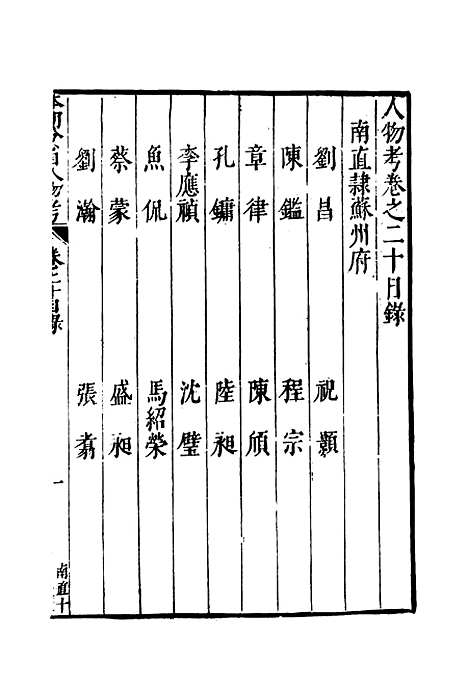 人物考卷之二十目錄
南直隸蘇州府
劉昌 祝顥
陳鑑 程宗
章律 陳頎
孔鏞 陸昶
李應禎 沈璧
魚侃 馬紹榮
蔡蒙 盛昶
劉瀚 張翥
本朝分省人物考 卷之二十目錄 一 南直十